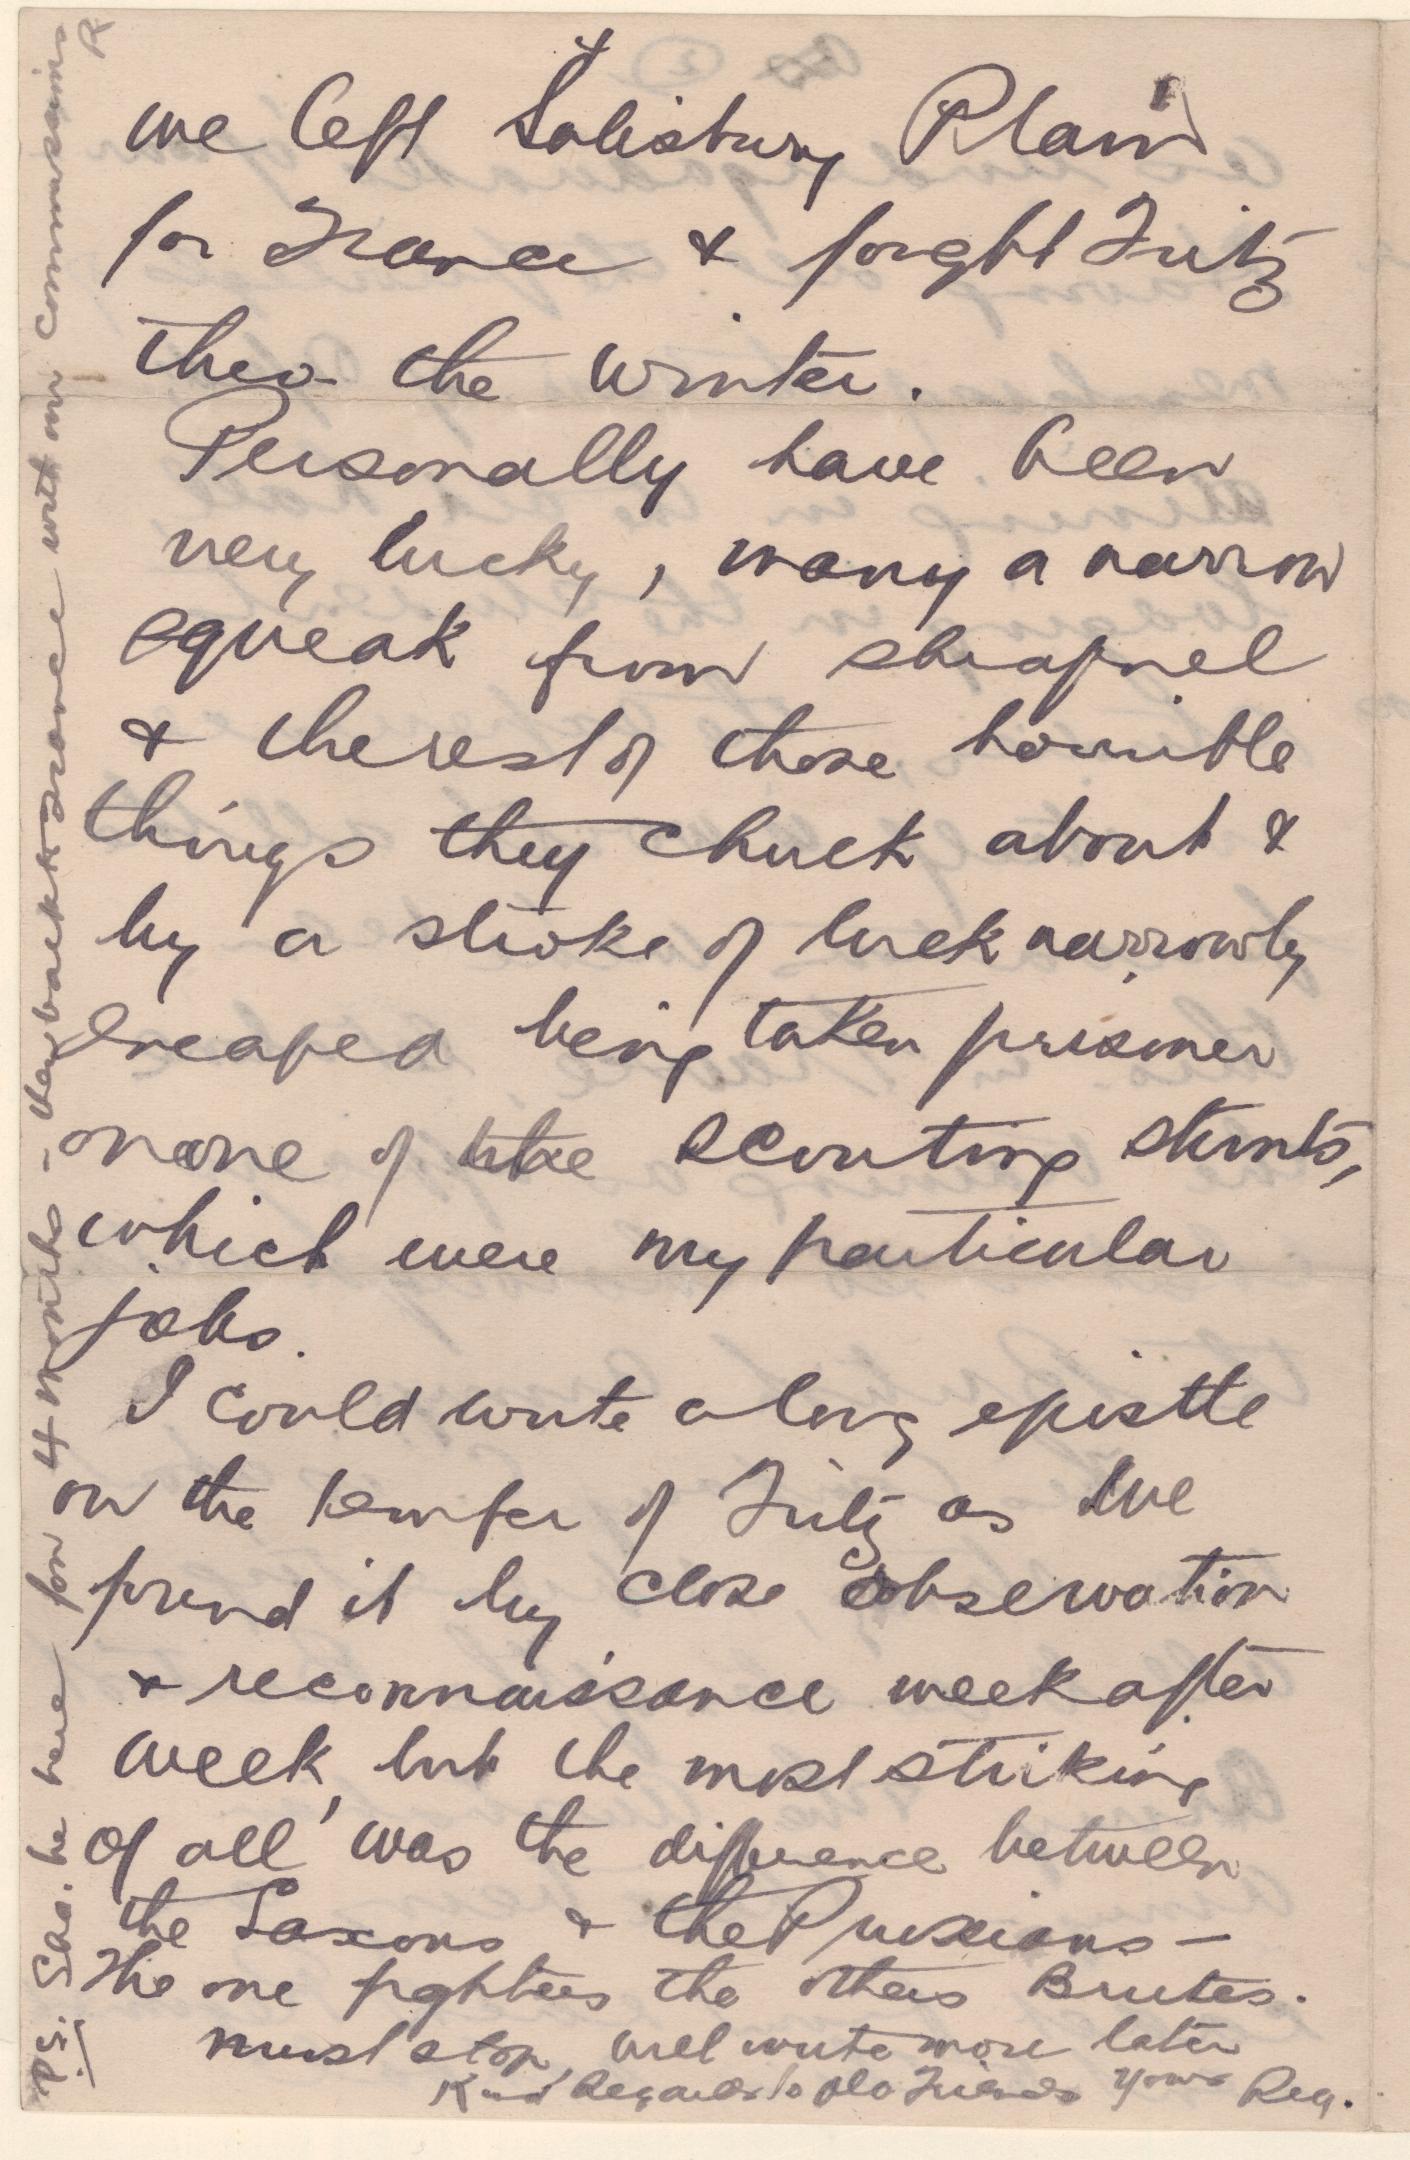 we left Salisbury Plain
for France & fought Fritz
thro the winter.
Personally have been
very lucky, many a narrow
squeak from shrapnel
& the rest of those horrible
things they chuck about &
by a stroke of luck narrowly
escaped being taken prisoner
on one of the scouting stunts,
which were my particular
jobs.
I could write a long epistle
on the temper of Fritz as we
found it by close observation
& reconnaissance week after
week, but the most striking
of all was the difference between
the Saxons & the Prussians —
The one fighters the others Brutes.
Must stop, will write more later
Kind Regards to old Friends Yours Reg.
P.S. Sha. be here for 4 months - then back to France with our commissions
R